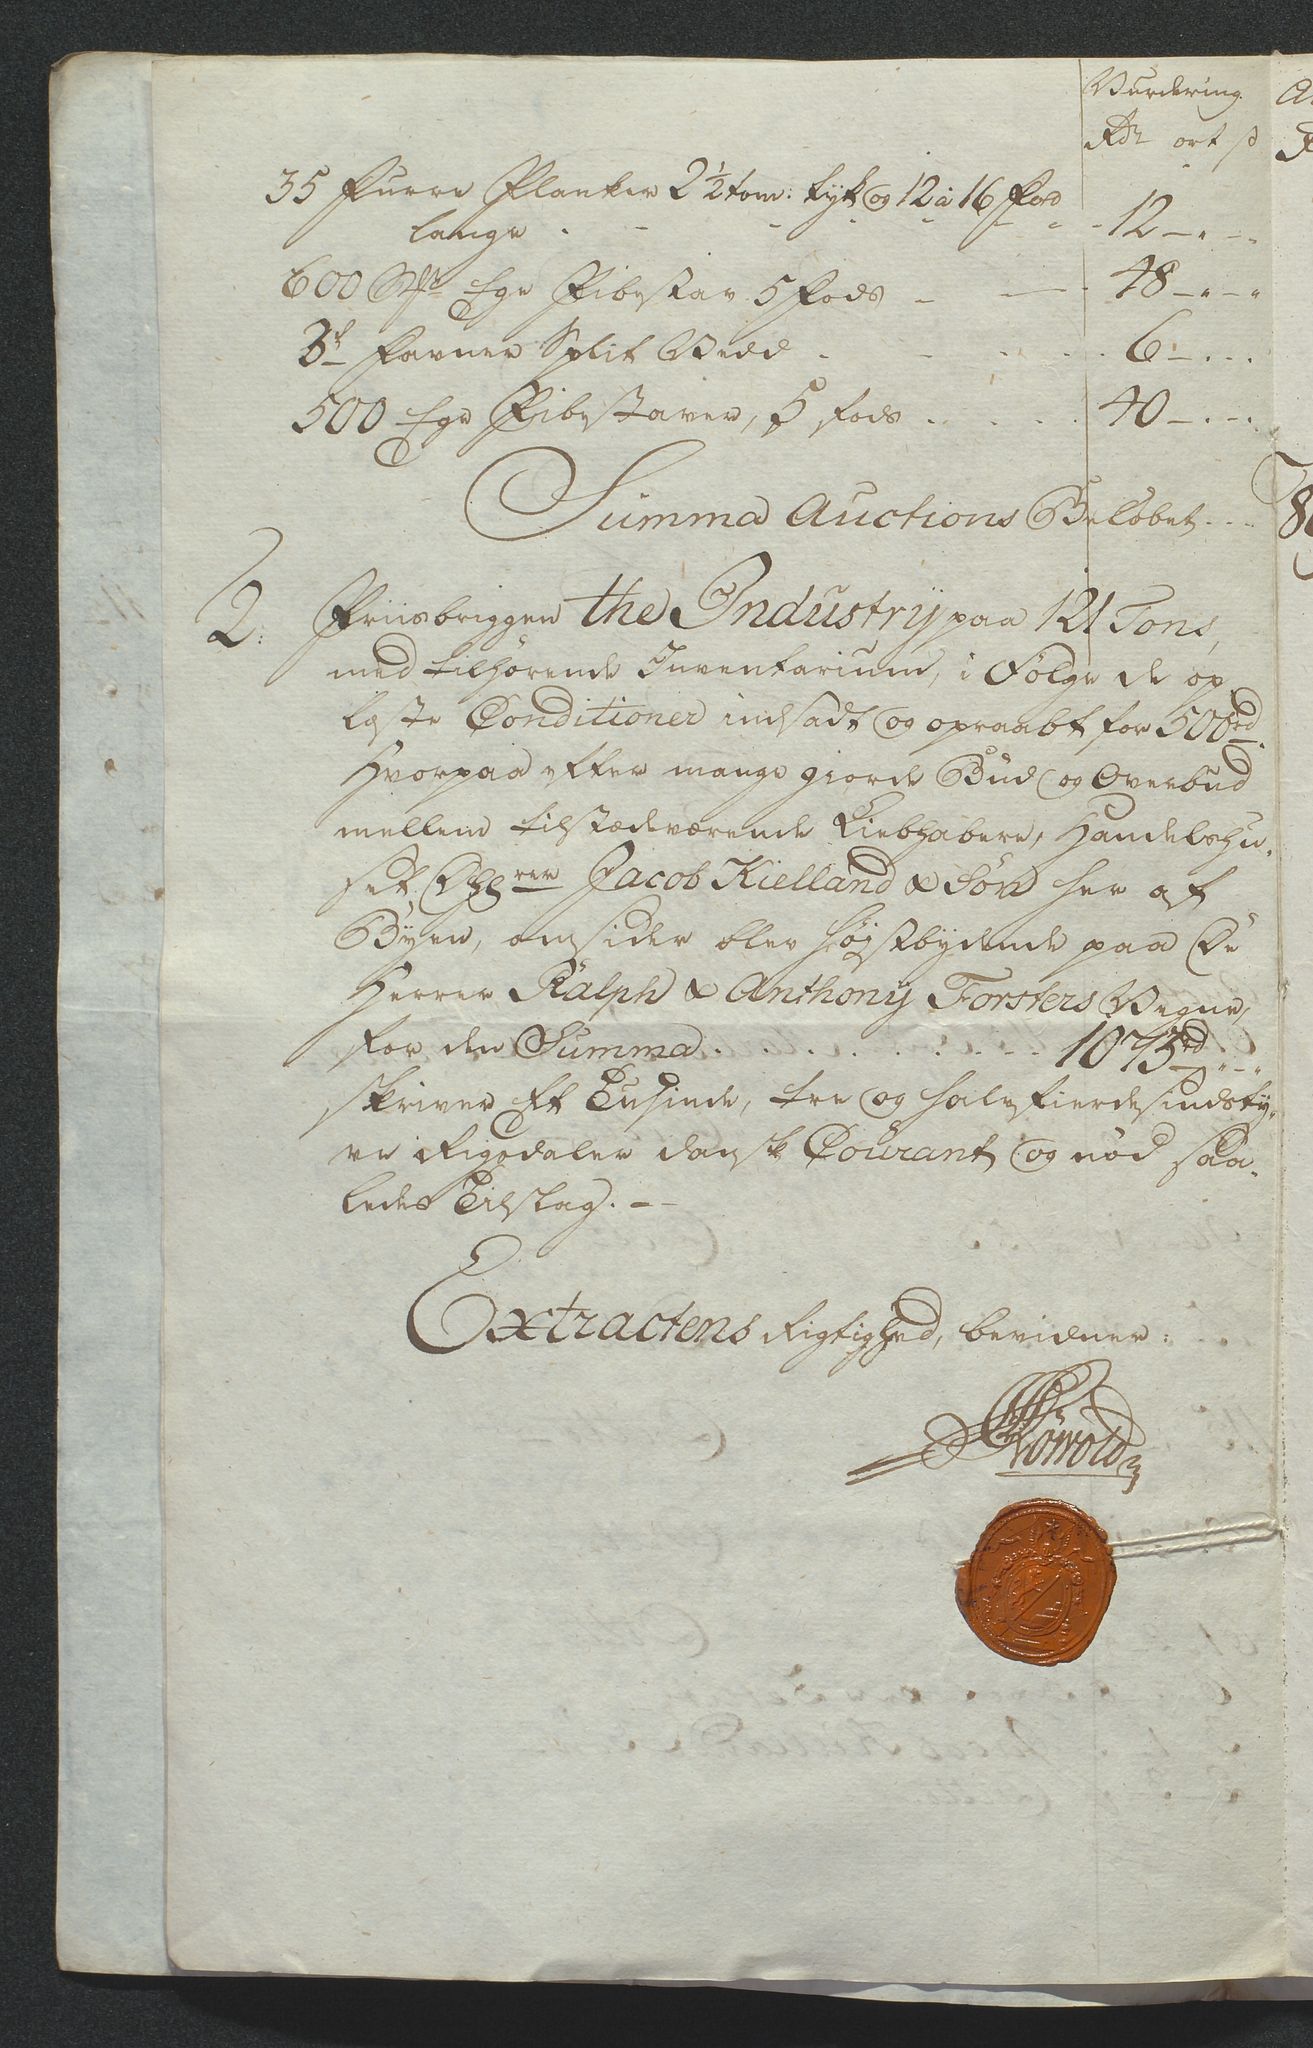 Vurdering.
Rdr ort s
35 Furre Planker 2 1/2 tom: tyk og 12 à 16 Fod
lange . - - - - - - 12 - " - "
600 Stk Ege Pibestav 5 Fods - - - 48 - " - "
3 Favner Split Vedd . - . . . . 6 - . . .
500 Ege Pibestaver, 5 fods . . . . 40 - . - .
Summa Auctions Beløbet . . .
2. Priisbriggen the Industrij paa 121 Tons,
med tilhørende Inventarium, i Følge de op
læste Conditioner indsadt og opraabt for 500rd.
Hvorpaa efter mange giorde Bud og Overbud
mellem tilstædeværende Liebhabere, Handelshu-
set Herrer Jacob Kielland & Søn her af
Byen, omsider blev høystbydende paa De
Herrer Ralph & Anthonij Forsters Vegne,
for den Summa . . . . . . . . . . 1073rd " - "
skriver Et Tusinde, tre og halvfierdesindsty-
ve Rigsdaler dansk Courant og nød saa-
ledes Tilslag. - -
Extractens Rigtighed, bevidner: